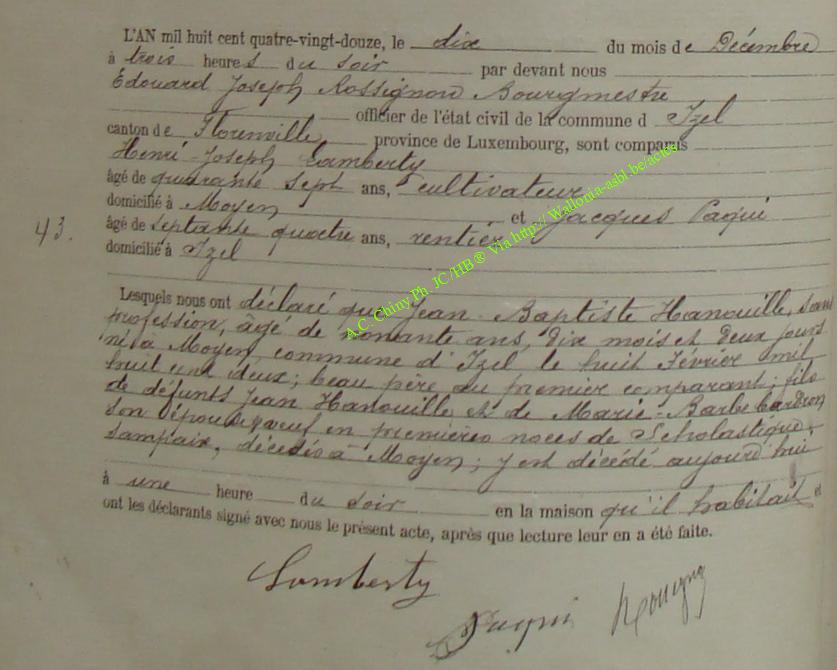 L'AN mil huit cent quatre-vingt-douze, le dix du mois de Décembre
à trois heures du soir par devant nous
Edouard Joseph Rossignon Bourgmestre
officier de l'état civil de la commune d Izel
canton de Florenville province de Luxembourg, sont comparus
Henri-Joseph Lamberty
âgé de quarante sept ans, cultivateur
domicilié à Moyen et Jacques Paqui
43. âgé de septante quatre ans, rentier
domicilié à Izel
A.C. Chiny Ph. JC/HB ® Via http://Wallonia-asbl.be/actes
Lesquels nous ont déclaré que Jean Baptiste Hanouille, sans
profession, âgé de nonante ans, dix mois et deux jours
né à Moyen, commune d'Izel le huit Février mil
huit cent deux; beau père au premier comparant; fils
de défunts Jean Hanouille et de Marie-Barbe
son épouse, veuf en premières noces de Scholastique
Sampaix, décédés à Moyen; y est décédé aujourd'hui
à une heure du soir en la maison qu'il habitait et
ont les déclarants signé avec nous le présent acte, après que lecture leur en a été faite.
Lamberty
Paqui